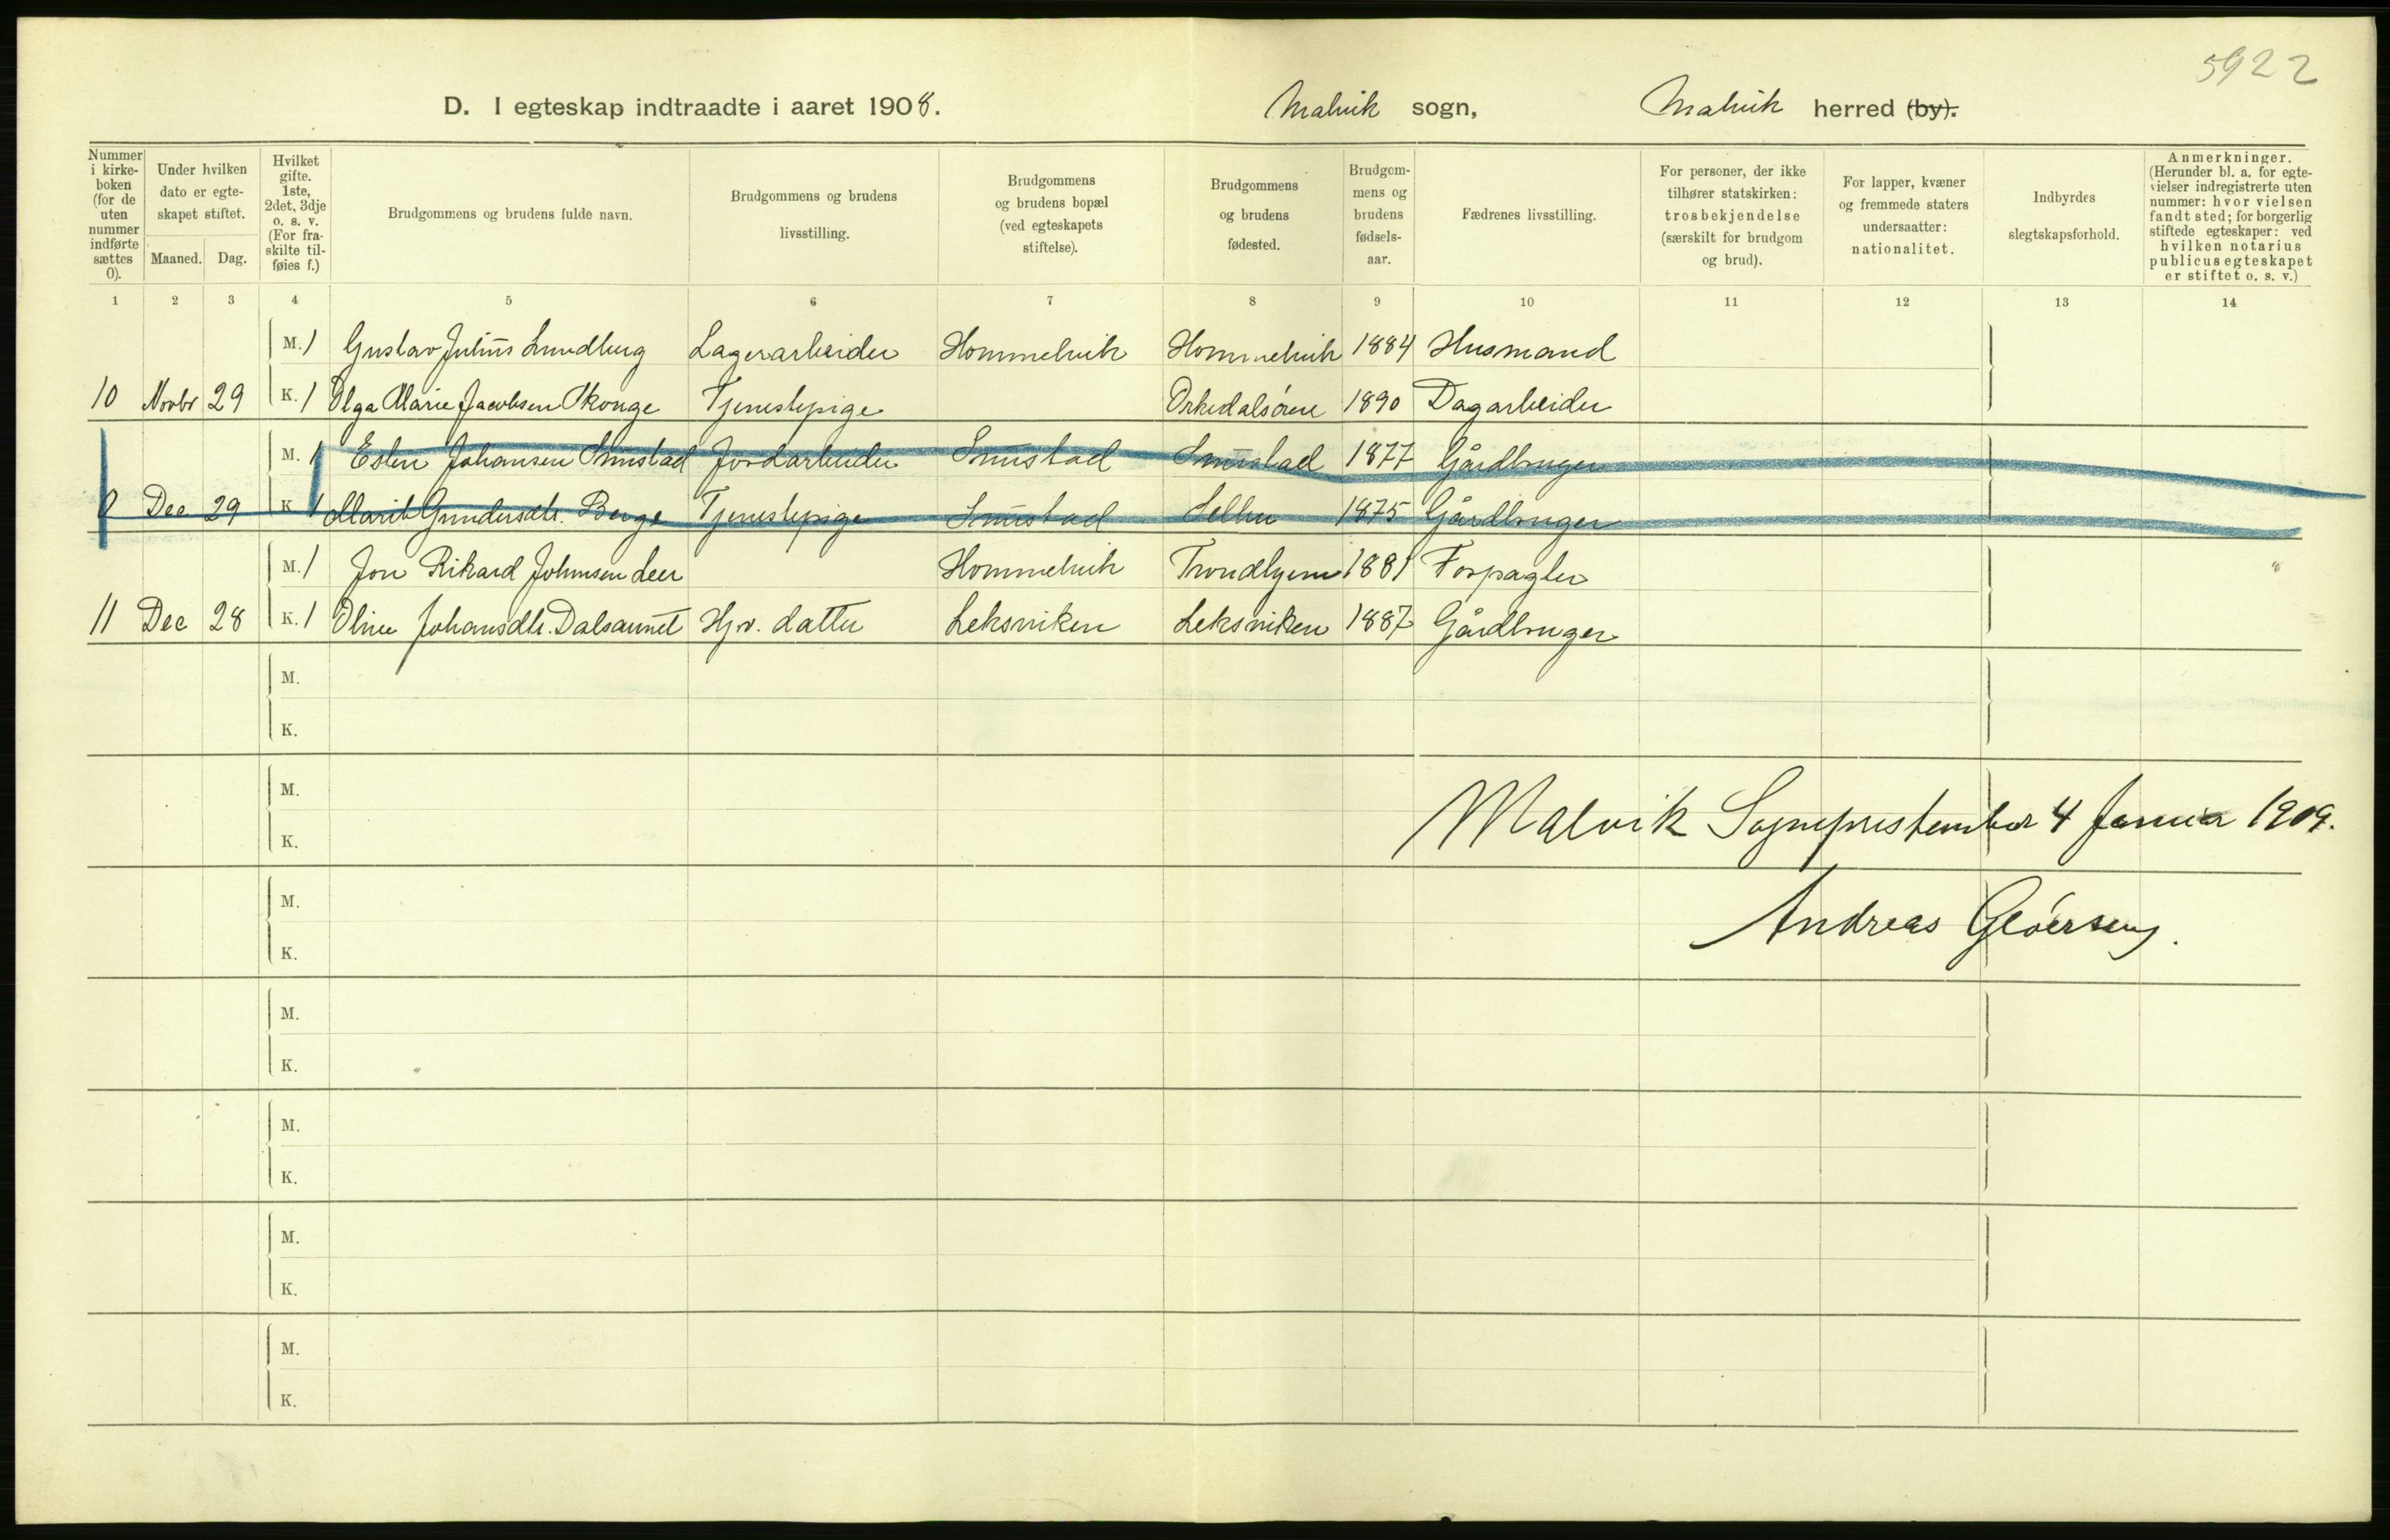 5922
D. I egteskap indtraadte i aaret 1908. Malvik sogn, Malvik herred (by).
Nummer i kirke-boken (for de uten nummer indførte sættes 0).
Under hvilken dato er egte-skapet stiftet.
Maaned. Dag.
Hvilket gifte. 1ste, 2det, 3dje o. s. v. (For fra-skilte til-føies f.)
Brudgommens og brudens fulde navn.
Brudgommens og brudens livsstilling.
Brudgommens og brudens bopæl (ved egteskapets stiftelse).
Brudgommens og brudens fødested.
Brudgom-mens og brudens fødsels-aar.
Fædrenes livsstilling.
For personer, der ikke tilhører statskirken: trosbekjendelse (særskilt for brudgom og brud).
For lapper, kvæner og fremmede staters undersaatter: nationalitet.
Indbyrdes slegtskapsforhold.
Anmerkninger. (Herunder bl. a. for egte-vielser indregistrerte uten nummer: hvor vielsen fandt sted; for borgerlig stiftede egteskaper: ved hvilken notarius publicus egteskapet er stiftet o. s. v.)
1 2 3 4 5 6 7 8 9 10 11 12 13 14
M. 1 Gustav Julius Lundberg Lagerarbeider Hommelvik Hommelvik 1884 Husmand
10 Novbr 29 K. 1 Olga Marie Jacobsen Skonge Tjenestepige Orkedalsøren 1890 Dagarbeider
M. 1 Esten Johansen Smustad Jordarbeider Smustad Smustad 1877 Gårdbruger
0 Dec 29 K 1 Marit Gundersdtr. Berge Tjenestepige Smustad Selbu 1875 Gårdbruger
M. 1 Jon Rikard Johnsen Leer Hommelvik Trondhjem 1881 Forpagter
11 Dec 28 K. 1 Oline Johansdtr. Dalsaunet Hjv. datter Leksviken Leksviken 1887 Gårdbruger
M.
K.
M.
Malvik Sogneprestembede 4 Januar 1909.
K.
M.
Andreas Gløersen.
K.
M.
K.
M.
K.
M.
K.
M.
K.